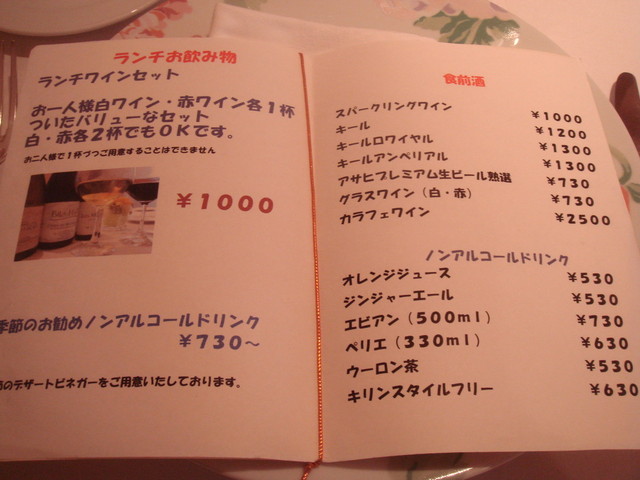 ランチお飲み物
ランチワインセット
お一人様白ワイン・赤ワイン各１杯
ついたバリューなセット
白・赤各２杯でもＯＫです。
お二人様で１杯づつご用意することはできません
￥１０００
季節のお勧めノンアルコールドリンク
￥７３０～
のデザートビネガーをご用意いたしております。
食前酒
スパークリングワイン ￥１０００
キール ￥１２００
キールロワイヤル ￥１３００
キールアンペリアル ￥１３００
アサヒプレミアム生ビール熟選 ￥７３０
グラスワイン（白・赤） ￥７３０
カラフェワイン ￥２５００
ノンアルコールドリンク
オレンジジュース ￥５３０
ジンジャーエール ￥５３０
エビアン（５００ｍｌ） ￥７３０
ペリエ（３３０ｍｌ） ￥６３０
ウーロン茶 ￥５３０
キリンスタイルフリー ￥６３０